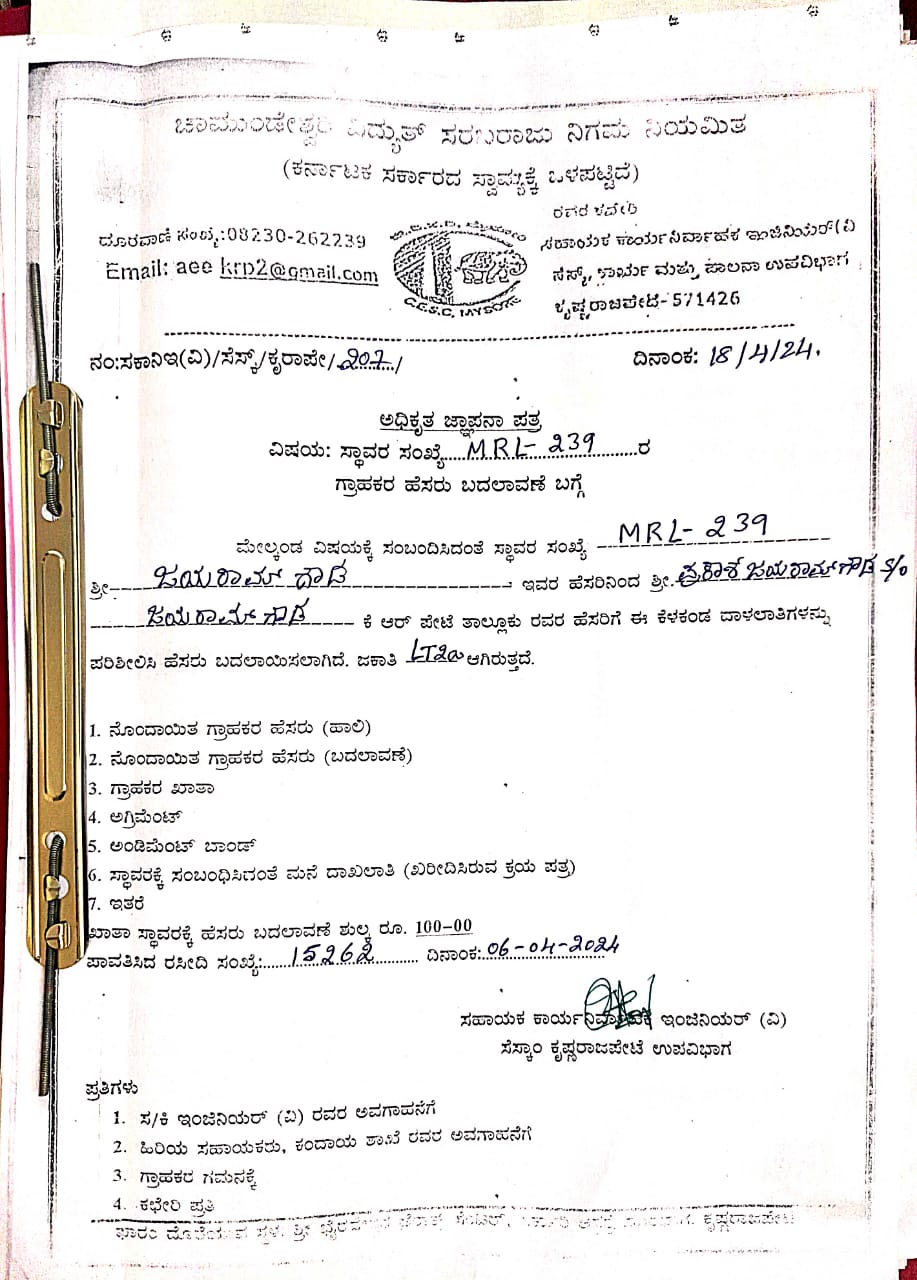 ಚಾಮುಂಡೇಶ್ವರಿ ವಿದ್ಯುತ್ ಸರಬರಾಜು ನಿಗಮ ನಿಯಮಿತ
(ಕರ್ನಾಟಕ ಸರ್ಕಾರದ ಸ್ವಾಮ್ಯಕ್ಕೆ ಒಳಪಟ್ಟಿದೆ)
ರವರ ಕಛೇರಿ
ದೂರವಾಣಿ ಸಂಖ್ಯೆ:08230-262239
ಸಹಾಯಕ ಕಾರ್ಯನಿರ್ವಾಹಕ ಇಂಜಿನಿಯರ್(ವಿ
Email: aee krp2@gmail.com
ಸೆಸ್ಕ್, ಕಾರ್ಯ ಮತ್ತು ಪಾಲನಾ ಉಪವಿಭಾಗ
ಕೃಷ್ಣರಾಜಪೇಟೆ-571426
C.E.S.C, MYSORE
ನಂ:ಸಕಾನಿಇ(ವಿ)/ಸೆಸ್ಕ್/ಕೃರಾಪೇ/207/
ದಿನಾಂಕ: 18/4/24.
ಅಧಿಕೃತ ಜ್ಞಾಪನಾ ಪತ್ರ
ವಿಷಯ: ಸ್ಥಾವರ ಸಂಖ್ಯೆ.....MRL- 239..........ರ
ಗ್ರಾಹಕರ ಹೆಸರು ಬದಲಾವಣೆ ಬಗ್ಗೆ
ಮೇಲ್ಕಂಡ ವಿಷಯಕ್ಕೆ ಸಂಬಂದಿಸಿದಂತೆ ಸ್ಥಾವರ ಸಂಖ್ಯೆ MRL- 239
ಶ್ರೀ---- ಜಯರಾಮ್ ಗೌಡ ---- ಇವರ ಹೆಸರಿನಿಂದ ಶ್ರೀ. ಪ್ರಕಾಶ ಜಯರಾಮ್ ಗೌಡ S/o
----- ಜಯರಾಮ್ ಗೌಡ ----- ಕೆ ಆರ್ ಪೇಟೆ ತಾಲ್ಲೂಕು ರವರ ಹೆಸರಿಗೆ ಈ ಕೆಳಕಂಡ ದಾಳಲಾತಿಗಳನ್ನು
ಪರಿಶೀಲಿಸಿ ಹೆಸರು ಬದಲಾಯಿಸಲಾಗಿದೆ. ಜಕಾತಿ LT2a ಆಗಿರುತ್ತದೆ.
1. ನೊಂದಾಯಿತ ಗ್ರಾಹಕರ ಹೆಸರು (ಹಾಲಿ)
2. ನೊಂದಾಯಿತ ಗ್ರಾಹಕರ ಹೆಸರು (ಬದಲಾವಣೆ)
3. ಗ್ರಾಹಕರ ಖಾತಾ
4. ಅಗ್ರಿಮೆಂಟ್
5. ಅಂಡಿಮೆಂಟ್ ಬಾಂಡ್
6. ಸ್ಥಾವರಕ್ಕೆ ಸಂಬಂಧಿಸಿದಂತೆ ಮನೆ ದಾಖಲಾತಿ (ಖರೀದಿಸಿರುವ ಕ್ರಯ ಪತ್ರ)
7. ಇತರೆ
ಖಾತಾ ಸ್ಥಾವರಕ್ಕೆ ಹೆಸರು ಬದಲಾವಣೆ ಶುಲ್ಕ ರೂ. 100-00
ಪಾವತಿಸಿದ ರಸೀದಿ ಸಂಖ್ಯೆ:.....15262....... ದಿನಾಂಕ:06-04-2024
ಸಹಾಯಕ ಕಾರ್ಯನಿರ್ವಾಹಕ ಇಂಜಿನಿಯರ್ (ವಿ)
ಸೆಸ್ಕಾಂ ಕೃಷ್ಣರಾಜಪೇಟೆ ಉಪವಿಭಾಗ
ಪ್ರತಿಗಳು
1. ಸ/ಕಿ ಇಂಜಿನಿಯರ್ (ವಿ) ರವರ ಅವಗಾಹನೆಗೆ
2. ಹಿರಿಯ ಸಹಾಯಕರು, ಕಂದಾಯ ಶಾಖೆ ರವರ ಅವಗಾಹನೆಗೆ
3. ಗ್ರಾಹಕರ ಗಮನಕ್ಕೆ
4. ಕಛೇರಿ ಪ್ರತಿ
ಫಾರಂ ದೊರೆಯುವ ಸ್ಥಳ: ಶ್ರೀ ಕೃಷ್ಣರಾಜಪೇಟೆ